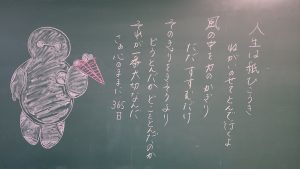 人生は紙ひこうき
ねがいのせてとんで行くよ
風の中を力のかぎり
ただすすむだけ
そのきょりをきそうより
どうとんだかどこをとんだのか
それが一番大切なんだ
さあ心のままに365日